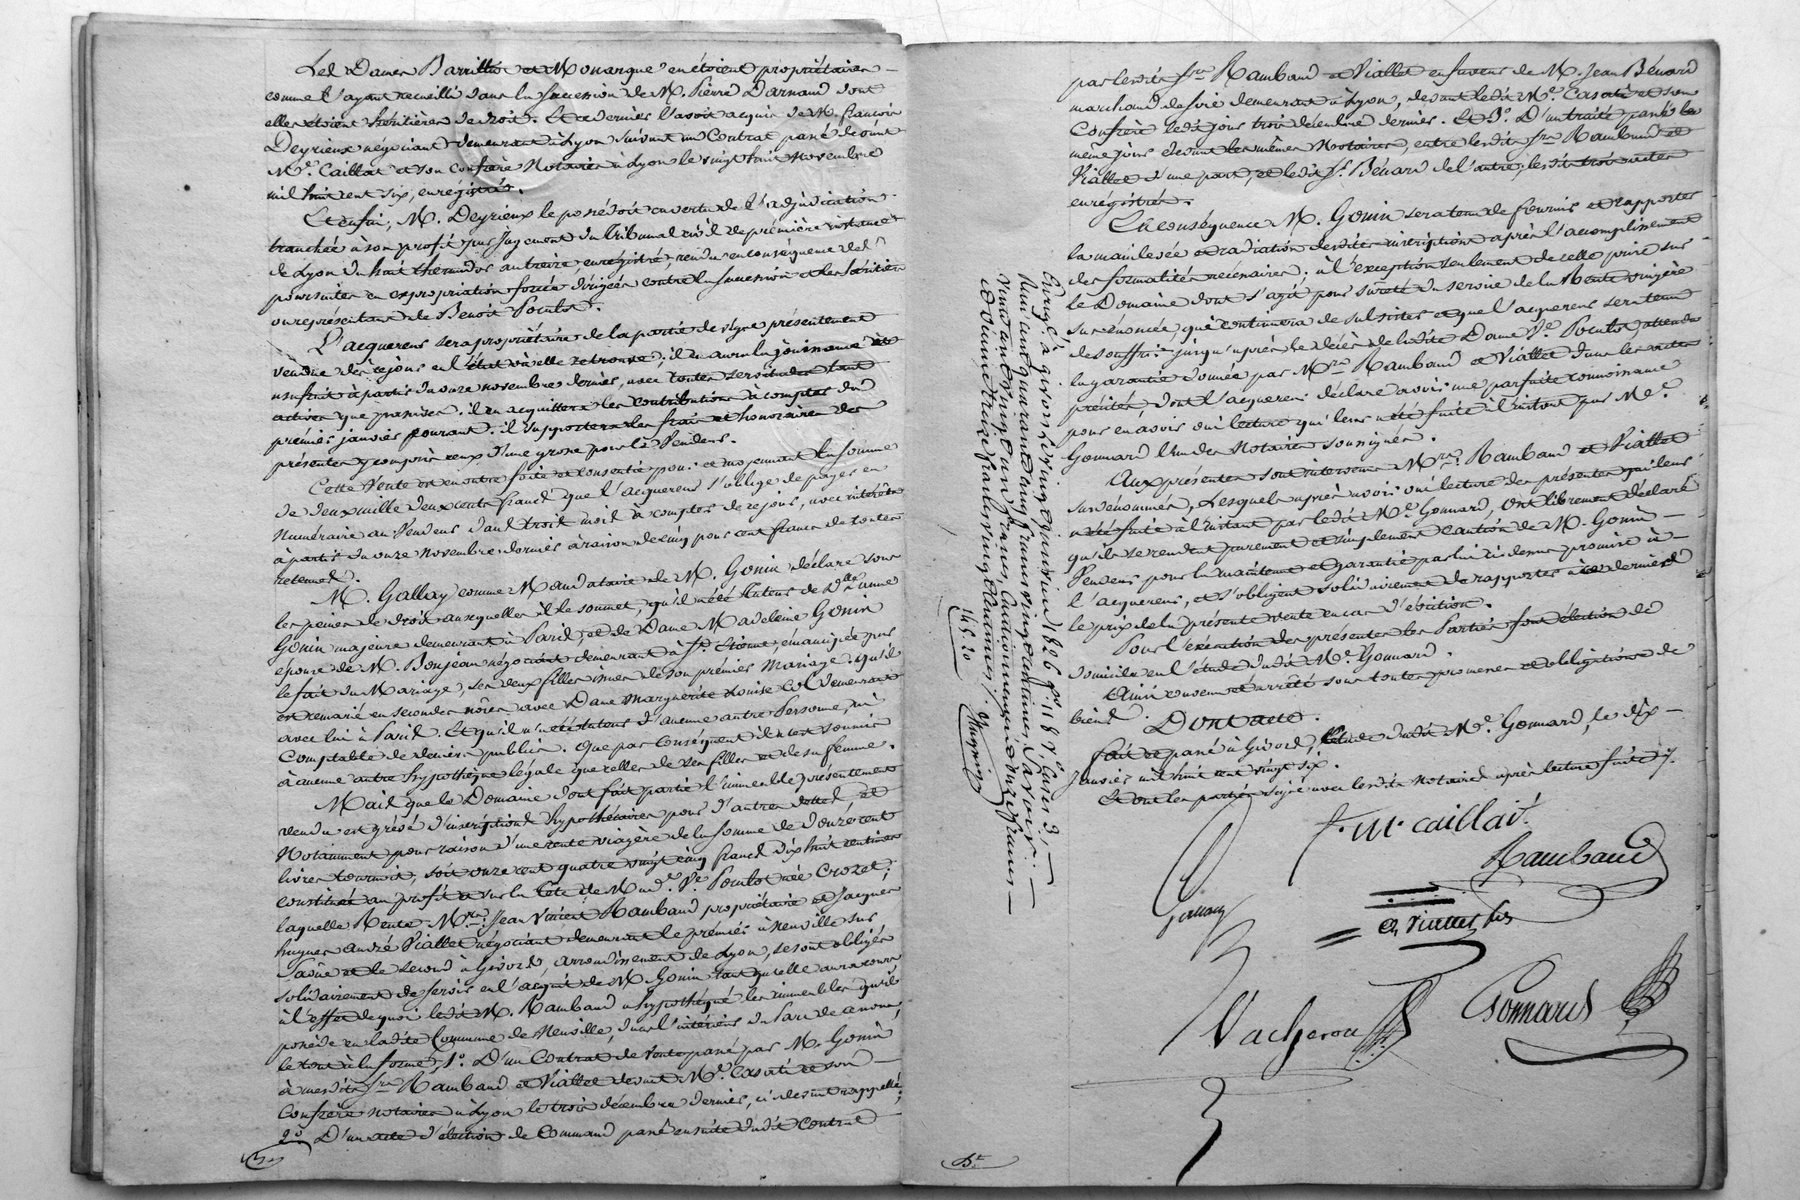 Les Dames Barrillio et Monarque en étoient propriétaires
comme l'ayant recueilli dans la succession de M. Pierre Darnaud dont
elles étoient héritières de droit. Et ce dernier l'avoit acquis de M. françois
Deyrieux négociant demeurant à Lyon suivant un Contrat passé devant
Me. Caillat et son confrère Notaires à Lyon le vingt huit novembre
mil huit cent six, enregistré.
Et enfin, M. Deyrieux le possédoit en vertu de l'adjudication
tranchée à son profit par Jugement du Tribunal civil de première instance
de Lyon du huit thermidor an treize, enregistré, rendu en conséquence des
poursuites en expropriation forcée dirigées contre la succession et les héritiers
ou représentans de Benoit Poulot.
L'acquereur sera propriétaire de la partie de vigne présentement
vendue dès ce jour en l'état où elle se trouve; il en aura la jouissance et
usufruit à partir du onze novembre dernier, avec toutes servitudes tant
actives que passives. il en acquittera les contributions à compter du
premier janvier courant. il supportera les frais et honoraires des
présentes y compris ceux d'une grosse pour le Vendeur.
Cette Vente est en outre faite et consentie pour et moyennant la somme
de deux mille deux cents francs que l'acquereur s'oblige de payer en
Numéraire au Vendeur dans trois mois à compter de ce jour, avec intérêts
à partir du onze Novembre dernier à raison de cinq pour cent francs de toutes
retenues.
M. Gallay comme Mandataire de M. Gonin déclare sous
les peines de droit auxquelles il le soumet, qu'il a été tuteur de Dlle. anne
Gonin majeure demeurant à Paris, et de Dame Madeleine Gonin
épouse de M. Bonjean négociant demeurant à St. Etienne, émancipée par
le fait du Mariage, ses deux filles issues de son premier Mariage. Qu'il
est remarié en secondes nôces avec Dame Marguerite Louise Col demeurant
avec lui à Paris. Et qu'il n'a été tuteur d'aucune autre Personne, ni
Comptable de deniers publics. Que par conséquent il n'est soumis
à aucune autre hypothèque légale que celles de ses filles et de sa femme.
Mais que le Domaine dont fait partie l'immeuble présentement
vendu est grevé d'inscriptions hypothécaires pour d'autres dettes, et
Notamment pour raison d'une rente viagère de la somme de douze cent
livres tournois, soit onze cent quatre vingt cinq francs dix huit centimes
constitué au profit et sur la tête de Made. Ve. Poulot née Crozet;
laquelle Rente Mrs. Jean Vincent Rambaud propriétaire et Jacques
hugues André Viallet négociant demeurant le premier à Neuville sur
Saône et le second à Givors, arrondissement de Lyon, se sont obligés
solidairement de servir en l'acquit de M. Gonin tant qu'elle aura cours
à l'effet de quoi ledit M. Rambaud a hypothéqué les immeubles qu'il
possède en ladite Commune de Neuville, dans l'intérieur du Parc de ce nom,
le tout à la forme, 1o. D'un Contrat de vente passé par M. Gonin
à mesdits Srs. Rambaud et Viallet devant Me. Casati et son
Confrère notaires à Lyon le trois décembre dernier, ci devant rappellé;
2o. D'un acte d'élection de Command passé ensuite dudit contrat
par lesdits Srs. Rambaud et Viallet en faveur de M. Jean Bénard
marchand de soie demeurant à Lyon, devant ledit Me. Casati et son
Confrère ledit jour trois décembre dernier. Et 3o. D'un traité passé le
même jour devant les mêmes Notaires, entre lesdits Srs. Rambaud et
Viallet d'une part, et ledit Sr. Bénard de l'autre; lesdits trois actes
enregistrés.
En conséquence M. Gonin sera tenu de fournir et rapporter
la mainlevée et radiation desdites inscriptions après l'accomplissement
des formalités nécessaires; à l'exception seulement de celle prise sur
le Domaine dont s'agit pour sûreté du service de la Rente viagère
sus énoncée, qui continuera de subsister et que l'acquereur sera tenu
de souffrir jusqu'après le décès de ladite Dame Ve. Poulot, attendu
la garantie donnée par Mrs. Rambaud et Viallet dans les actes
précités, dont l'acquereur déclare avoir une parfaite connoissance
pour en avoir oui lecture qui leur a été faite à l'instant par Me.
Gonnard l'un des Notaires soussignés.
Aux présentes sont intervenus Mrs. Rambaud et Viallet
susdénommés, Lesquels après avoir oui lecture des présentes qui leur
a été faite à l'instant par ledit Me. Gonnard, Ont librement déclaré
qu'ils se rendent purement et simplement caution de M. Gonin
Vendeur pour la maintenue et garantie par lui ci dessus promise à
l'acquereur, et s'obligent solidairement de rapporter à ce dernier
le prix de la présente vente en cas d'éviction.
Pour l'exécution des présentes les Parties font élection de
domicile en l'étude dudit Me. Gonnard.
Ainsi convenu et arrêté sous toutes promesses et obligations de
biens. Dont acte.
fait et passé à Givors, Etude dudit Me. Gonnard, le dix
Janvier mil huit cent vingt six.
Et ont les parties signé avec lesdits notaires après lecture faite /.
f. m. caillat.
Rambaud
Gallay
A. Viallet fils
Vacheron
Gonnard
Enregé. à givors le vingt janvier 1826 fo. 118 Vo. Cases 3,
Reçu cent quarante cinq francs vingt centimes, Savoir:
Vente cent vingt un francs, Cautionnement onze francs
et douzième treize francs vingt centimes /.
145.20